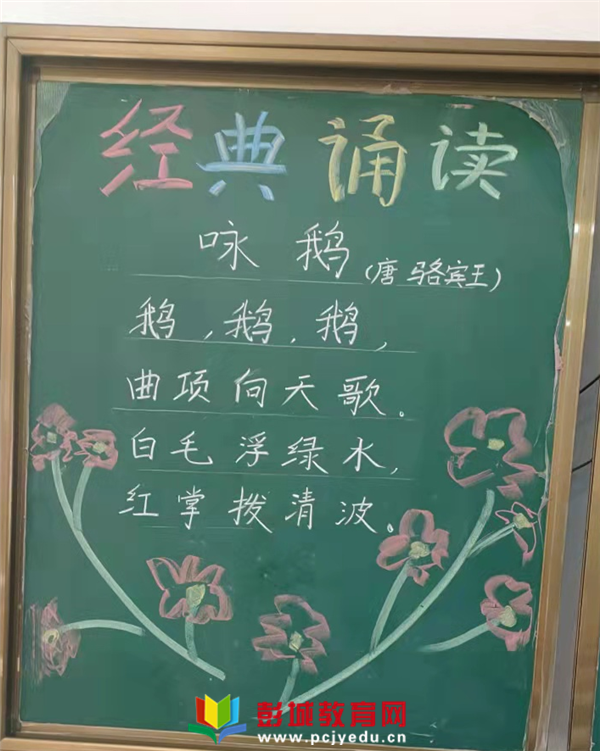 经典诵读
咏鹅(唐 骆宾王)
鹅,鹅,鹅,
曲项向天歌。
白毛浮绿水,
红掌拨清波。
彭城教育网
www.pcjyedu.cn